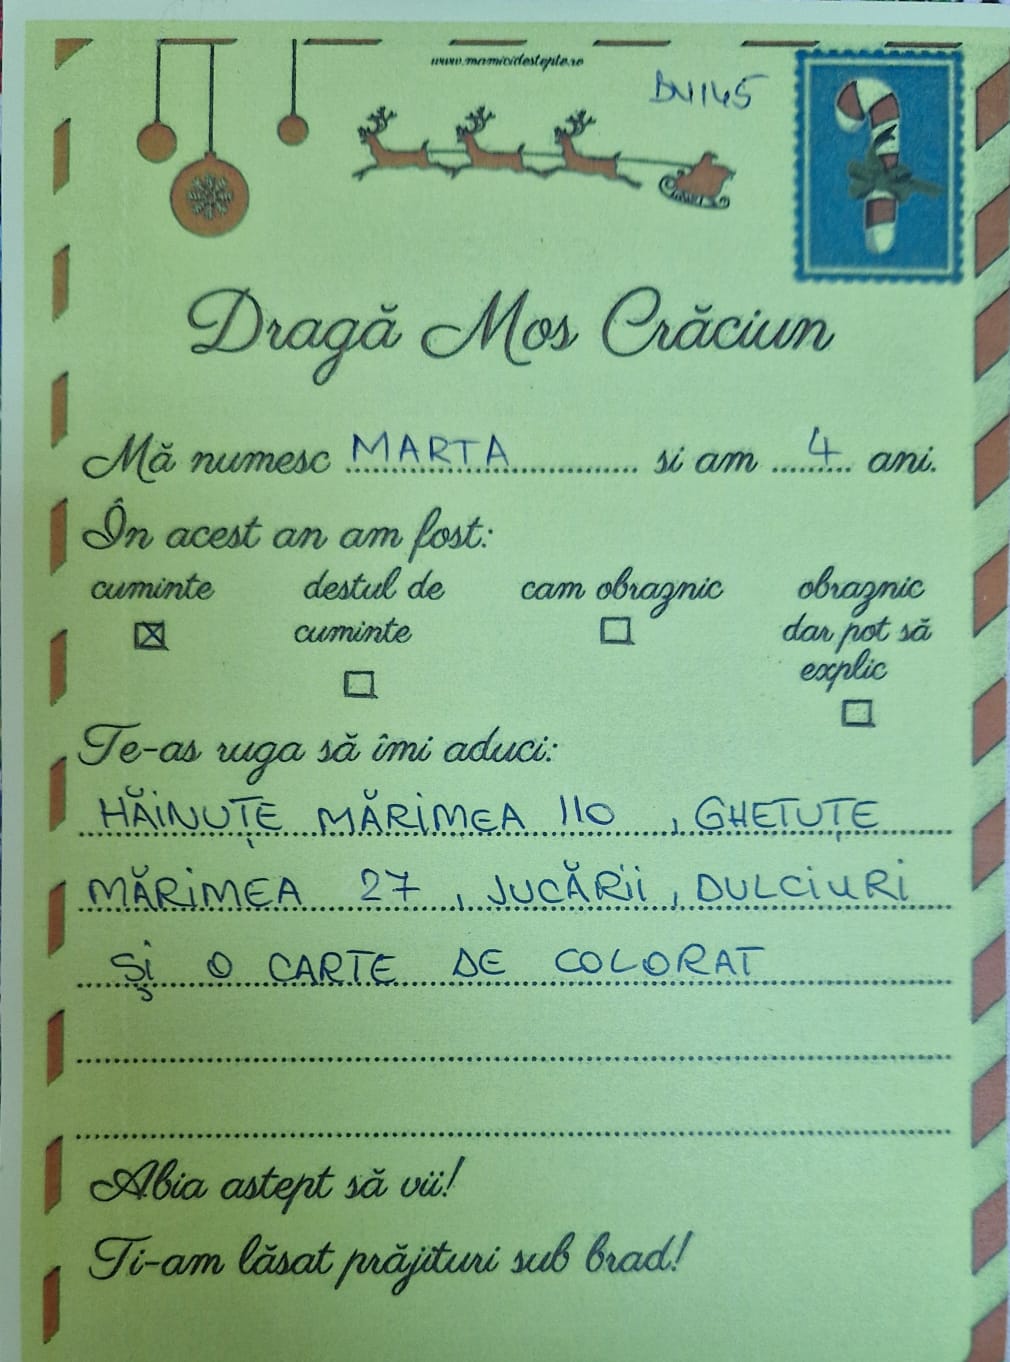 www.mamicidestepte.ro
BN145
Dragă Mos Crăciun
Mă numesc MARTA si am 4 ani.
În acest an am fost:
cuminte destul de cuminte cam obraznic obraznic dar pot să explic
Te-as ruga să îmi aduci:
HĂINUȚE MĂRIMEA 110, GHETUȚE
MĂRIMEA 27, JUCĂRII, DULCIURI
ȘI O CARTE DE COLORAT
Abia astept să vii!
Ti-am lăsat prăjituri sub brad!